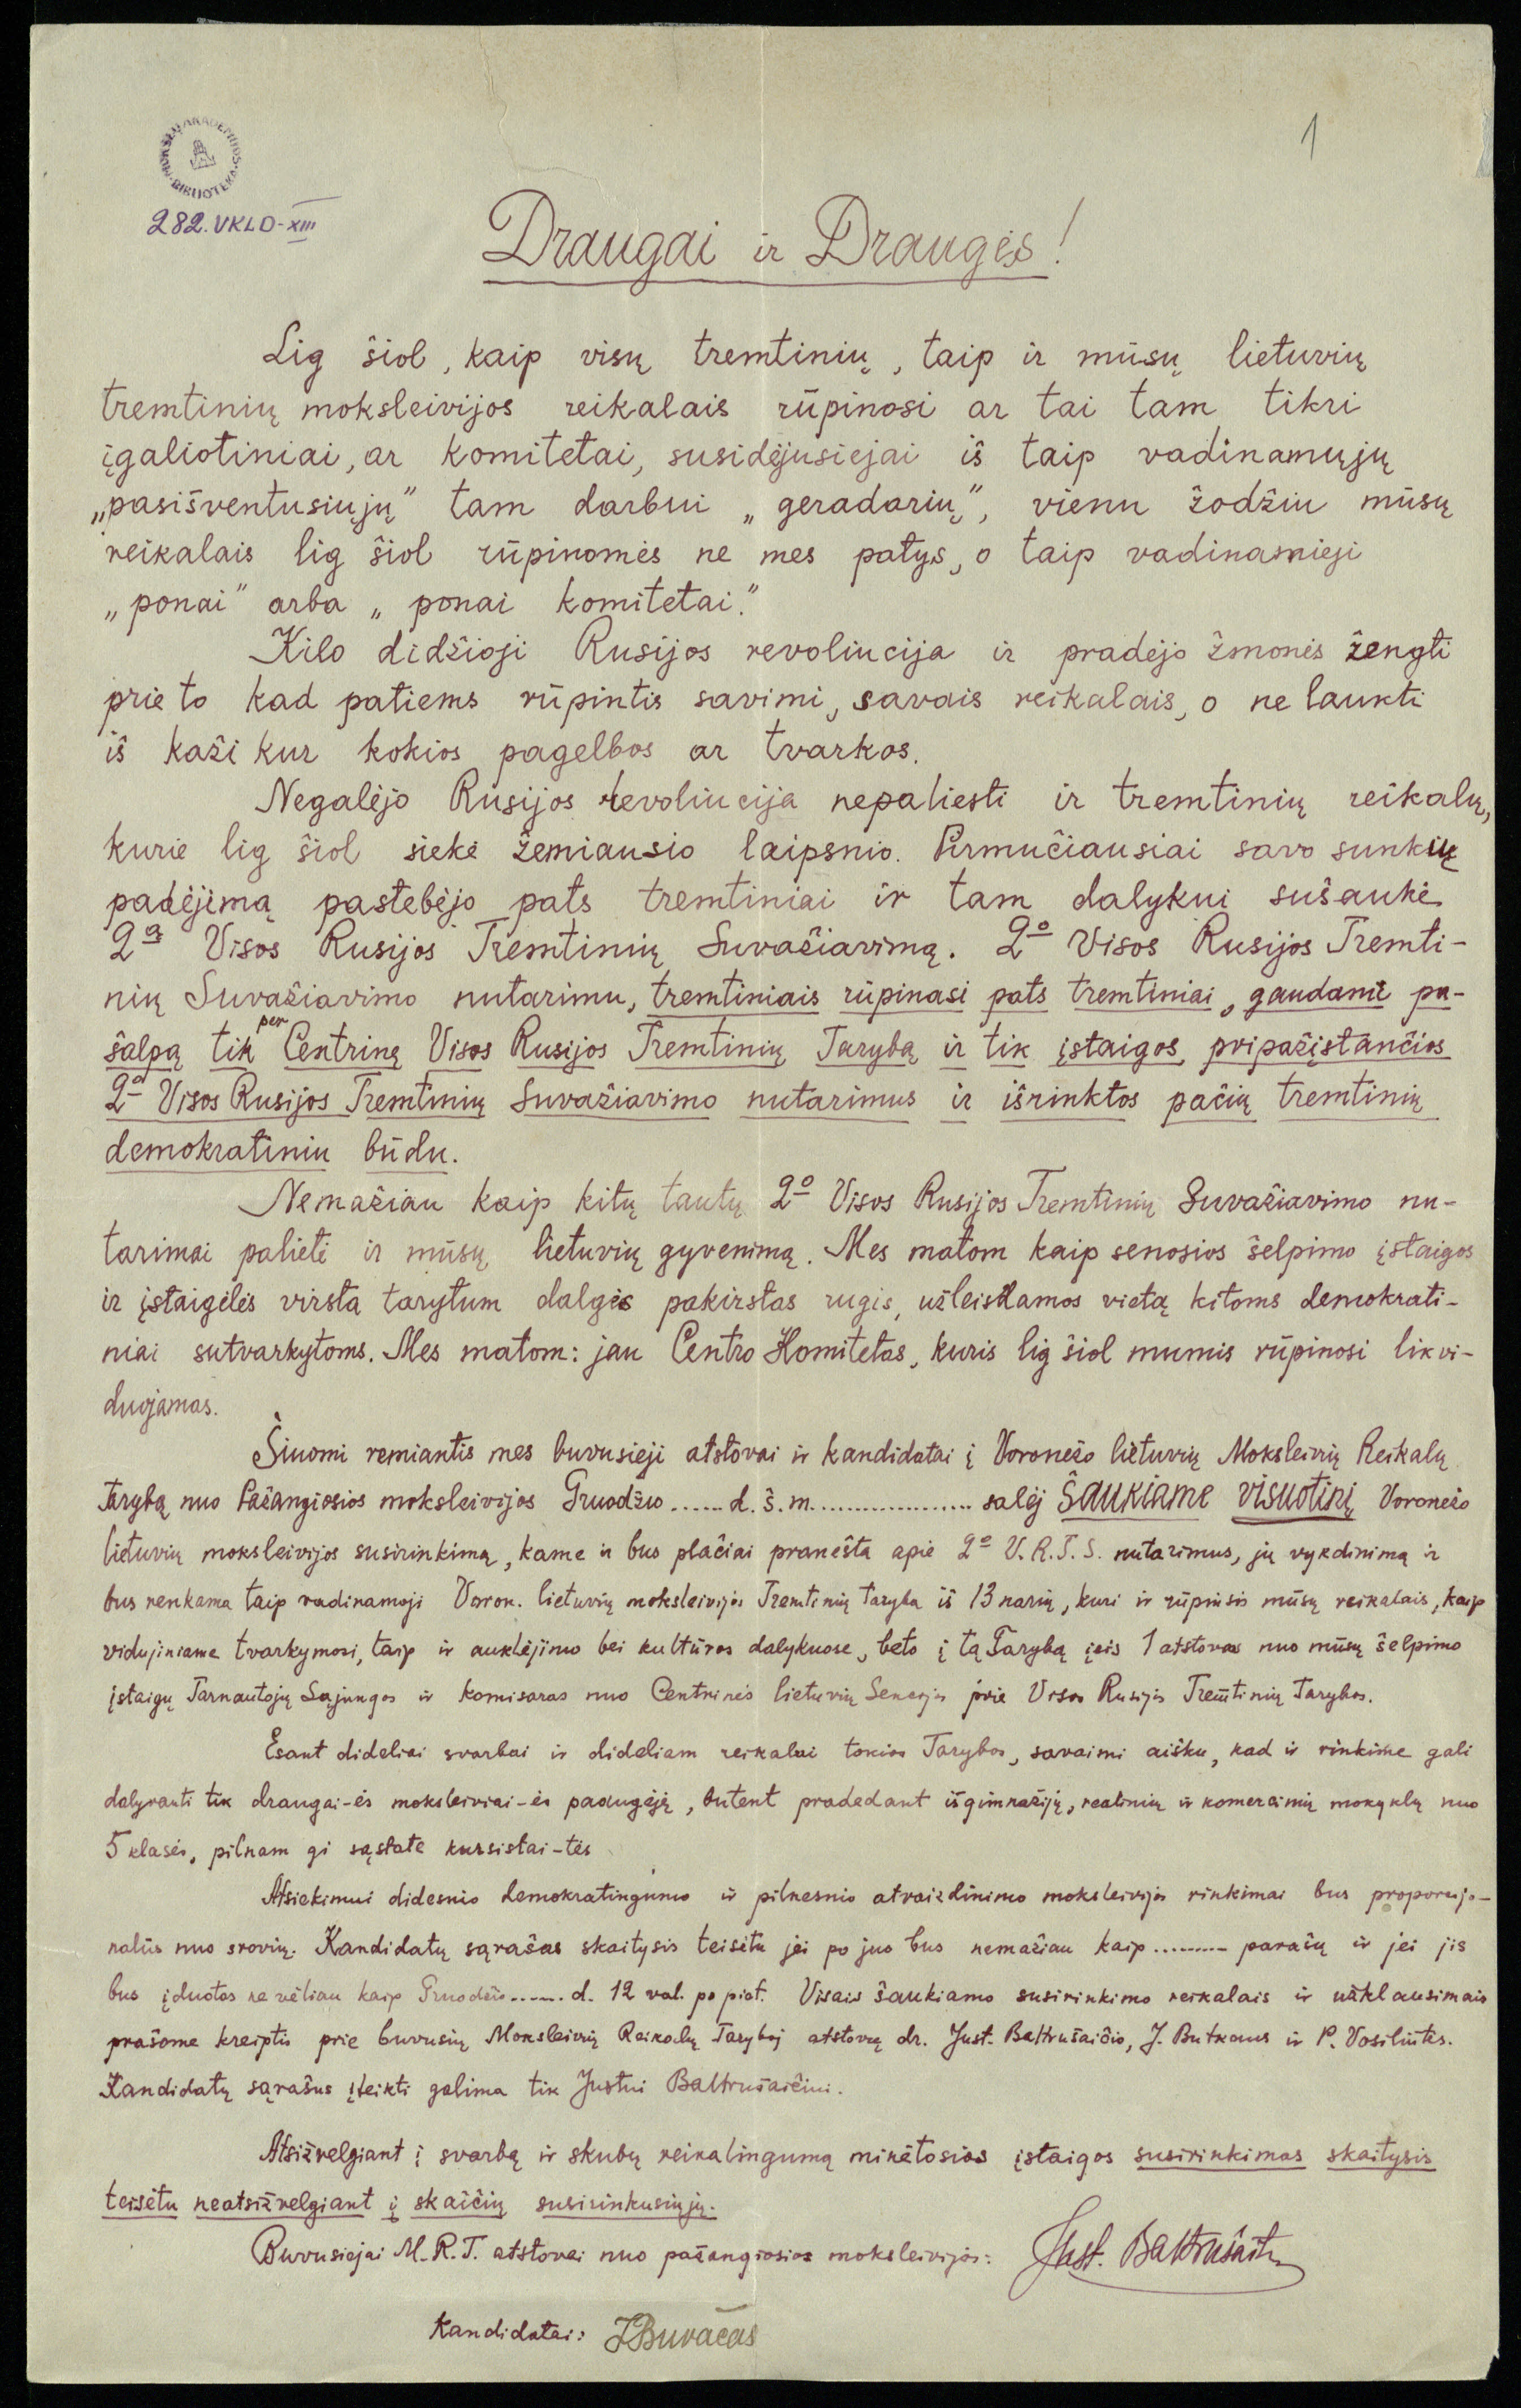 1
MOKSLŲ AKADEMIJOS BIBLIOTEKA
282. VKLD-XIII
Draugai ir Draugės!
Lig šiol, kaip visų tremtinių, taip ir mūsų lietuvių
tremtinių moksleivijos reikalais rūpinosi ar tai tam tikri
įgaliotiniai, ar komitetai, susidėjusiejai iš taip vadinamųjų
„pasišventusiųjų” tam darbui „geradarių”, vienu žodžiu mūsų
reikalais lig šiol rūpinomės ne mes patys, o taip vadinamieji
„ponai” arba „ponai komitetai.”
Kilo didžioji Rusijos revoliucija ir pradėjo žmonės žengti
prie to kad patiems rūpintis savimi, savais reikalais, o ne laukti
iš kaži kur kokios pagelbos ar tvarkos.
Negalėjo Rusijos revoliucija nepaliesti ir tremtinių reikalų,
kurie lig šiol siekė žemiausio laipsnio. Pirmučiausiai savo sunkių
padėjimą pastebėjo pats tremtiniai ir tam dalykui sušaukė
2ą Visos Rusijos Tremtinių Suvažiavimą. 2o Visos Rusijos Tremti-
nių Suvažiavimo nutarimu, tremtiniais rūpinasi pats tremtiniai, gaudami pa-
šalpą tik per Centrinę Visos Rusijos Tremtinių Tarybą ir tik įstaigos, pripažįstančios
2o Visos Rusijos Tremtinių Suvažiavimo nutarimus ir išrinktos pačių tremtinių
demokratiniu būdu.
Nemažiau kaip kitų tautų 2o Visos Rusijos Tremtinių Suvažiavimo nu-
tarimai palietė ir mūsų lietuvių gyvenimą. Mes matom kaip senosios šelpimo įstaigos
ir įstaigėlės virsta tarytum dalgės pakirstas rugis, užleisdamos vietą kitoms demokrati-
niai sutvarkytoms. Mes matom: jau Centro Komitetas, kuris lig šiol mumis rūpinosi likvi-
duojamas.
Šiuomi remiantis mes buvusieji atstovai ir kandidatai į Voronežo lietuvių Moksleivių Reikalų
Tarybą nuo Pažangiosios moksleivijos Gruodžio ...... d. š. m. .................. salėj šaukiame visuotinį Voronežo
lietuvių moksleivijos susirinkimą, kame ir bus plačiai pranešta apie 2o V. R. T. S. nutarimus, jų vykdinimą ir
bus renkama taip vadinamoji Voron. lietuvių moksleivijos Tremtinių Taryba iš 13 narių, kuri ir rūpinsis mūsų reikalais, kaip
vidujiniame tvarkymosi, taip ir auklėjimo bei kultūros dalykuose, beto į tą Tarybą įeis 1 atstovas nuo mūsų šelpimo
įstaigų Tarnautojų Sąjungos ir komisaras nuo Centrinės lietuvių Sekcijos prie Visos Rusijos Tremtinių Tarybos.
Esant dideliai svarbai ir dideliam reikalui tokios Tarybos, savaimi aišku, kad ir rinkime gali
dalyvauti tik draugai-ės moksleiviai-ės paaugėję, butent pradedant iš gimnazijų, realinių ir komercinių mokyklų nuo
5 klasės, pilnam gi sąstate kursistai-tės
Atsiekimui didesnio demokratingumo ir pilnesnio atvaizdinimo moksleivijos rinkimai bus proporcijo-
nalūs nuo srovių. Kandidatų sąrašas skaitysis teisėtu jei po juo bus nemažiau kaip ......... parašų ir jei jis
bus įduotas ne vėliau kaip Gruodžio ...... d. 12 val. po piet. Visais šaukiamo susirinkimo reikalais ir užklausimais
prašome kreiptis prie buvusių Moksleivių Reikalų Taryboj atstovų dr. Just. Baltrušaičio, J. Butkaus ir P. Vosiliūtės.
Kandidatų sąrašus įteikti galima tik Justui Baltrušaičiui.
Atsižvelgiant į svarbą ir skubų reikalingumą minėtosios įstaigos susirinkimas skaitysis
teisėtu neatsižvelgiant į skaičių susirinkusiųjų.
Buvusiejai M. R. T. atstovai nuo pažangiosios moksleivijos: Just. Baltrušaitis
Kandidatai: J Buvačas